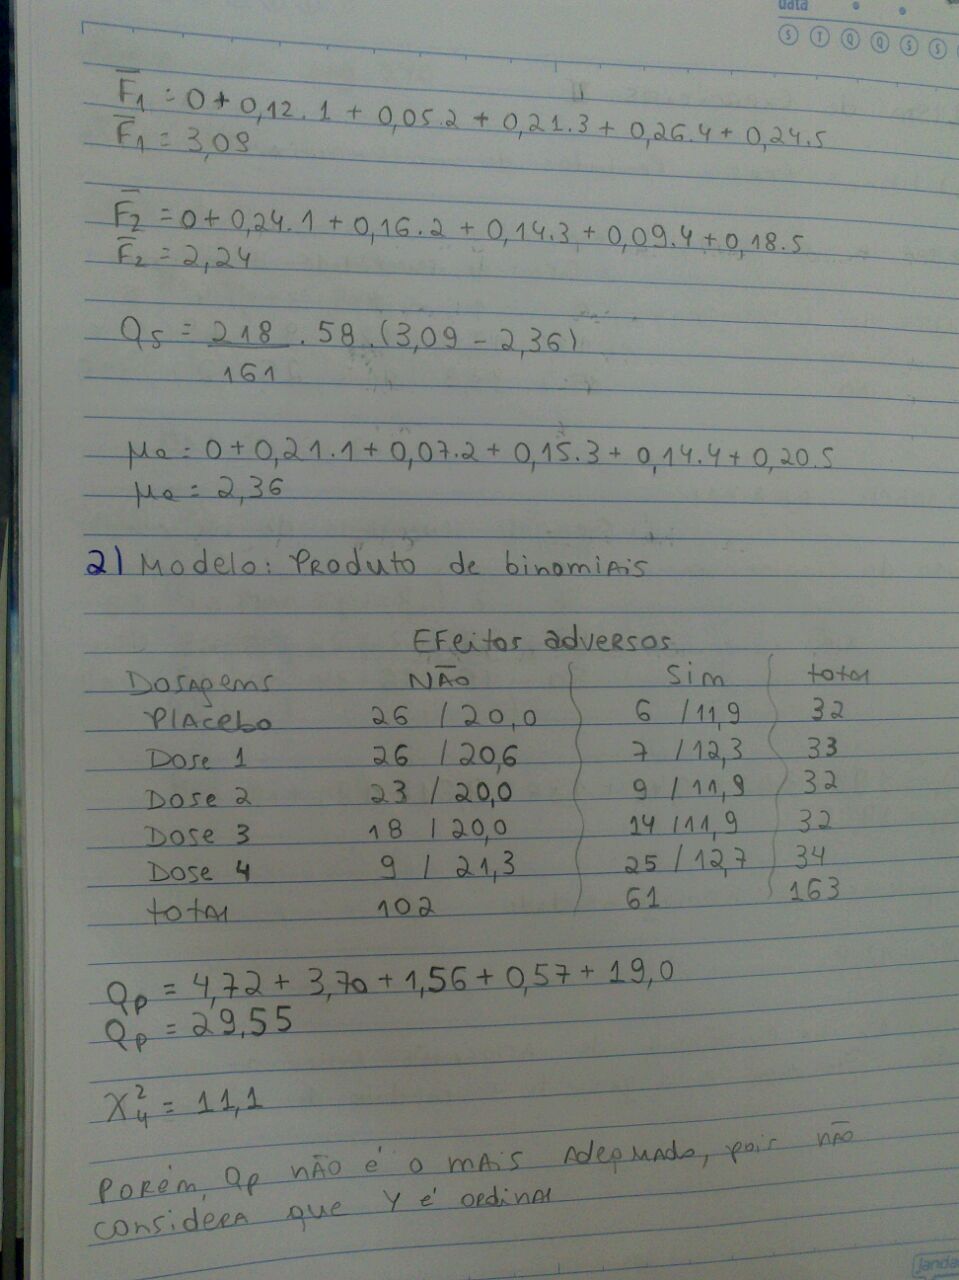 data
S T Q Q S S
F̄1 = 0 + 0,12.1 + 0,05.2 + 0,21.3 + 0,26.4 + 0,24.5
F̄1 = 3,09
F̄2 = 0 + 0,24.1 + 0,16.2 + 0,14.3 + 0,09.4 + 0,18.5
F̄2 = 2,24
QS = 218/161 . 58 . (3,09 - 2,36)
μa = 0 + 0,21.1 + 0,07.2 + 0,15.3 + 0,14.4 + 0,20.5
μa = 2,36
2) Modelo: Produto de binomiais
Efeitos adversos
Dosagens NÃO Sim total
Placebo 26 / 20,0 6 / 11,9 32
Dose 1 26 / 20,6 7 / 12,3 33
Dose 2 23 / 20,0 9 / 11,9 32
Dose 3 18 / 20,0 14 / 11,9 32
Dose 4 9 / 21,3 25 / 12,7 34
total 102 61 163
Qp = 4,72 + 3,70 + 1,56 + 0,57 + 19,0
Qp = 29,55
X²4 = 11,1
Porém, Qp não é o mais adequado, pois não
considera que Y é ordinal